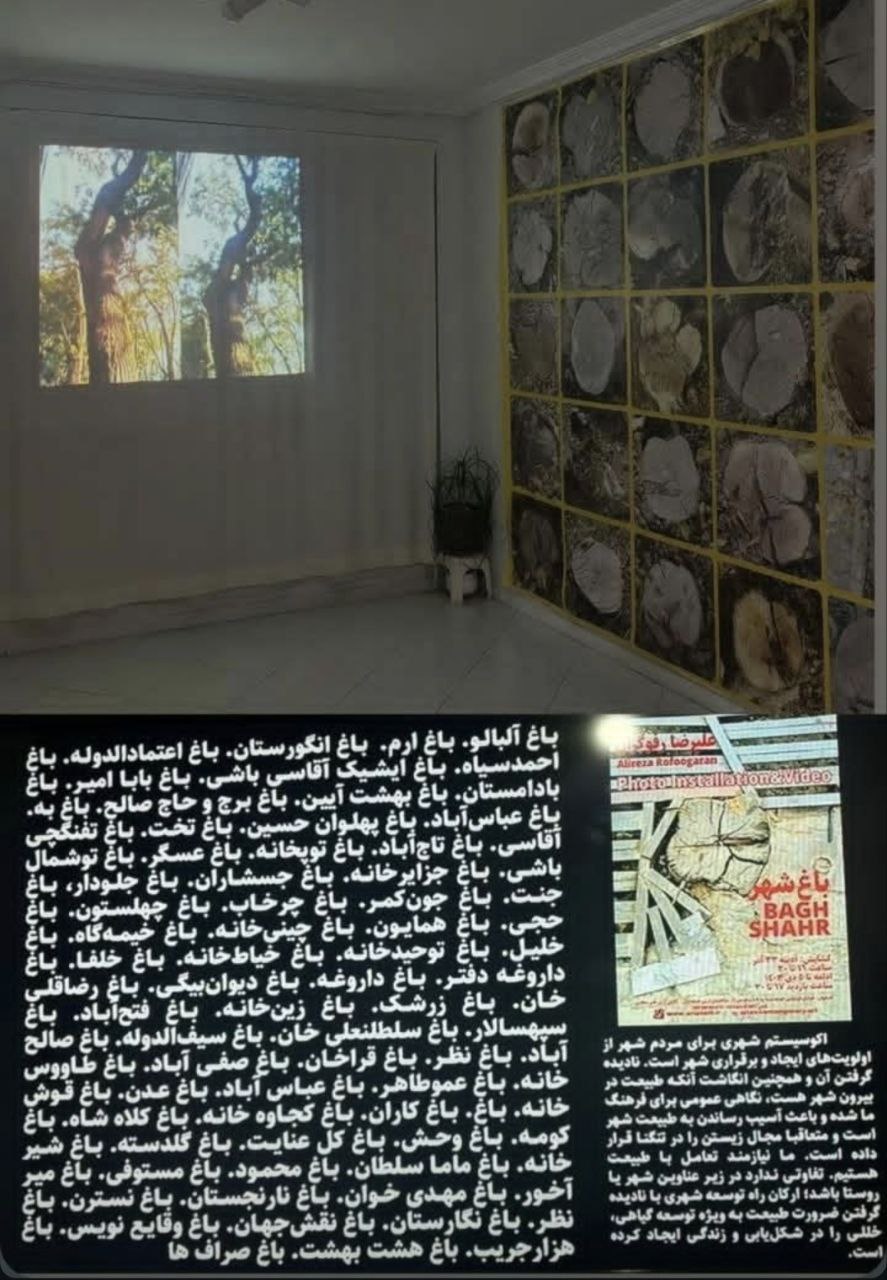 باغ آلبالو. باغ ارم. باغ انگورستان. باغ اعتمادالدوله. باغ
احمدسیاه. باغ ایشیک آقاسی باشی. باغ بابا امیر. باغ
بادامستان. باغ بهشت آیین. باغ برج و حاج صالح. باغ به.
باغ عباس‌آباد. باغ پهلوان حسین. باغ تخت. باغ تفنگچی
آقاسی. باغ تاج‌آباد. باغ توپخانه. باغ عسگر. باغ توشمال
باشی. باغ جزایرخانه. باغ جسشاران. باغ جلودار، باغ
جنت. باغ جون‌کمر. باغ چرخاب. باغ چهلستون. باغ
حجی. باغ همایون. باغ چینی‌خانه. باغ خیمه‌گاه. باغ
خلیل. باغ توحیدخانه. باغ خیاط‌خانه. باغ خلفا. باغ
داروغه دفتر. باغ داروغه. باغ دیوان‌بیگی. باغ رضاقلی
خان. باغ زرشک. باغ زین‌خانه. باغ فتح‌آباد. باغ
سپهسالار. باغ سلطانعلی خان. باغ سیف‌الدوله. باغ صالح
آباد. باغ نظر. باغ قراخان. باغ صفی آباد. باغ طاووس
خانه. باغ عموطاهر. باغ عباس آباد. باغ عدن. باغ قوش
خانه. باغ. باغ کاران. باغ کجاوه خانه. باغ کلاه شاه. باغ
کومه. باغ وحش. باغ کل عنایت. باغ گلدسته. باغ شیر
خانه. باغ ماما سلطان. باغ محمود. باغ مستوفی. باغ میر
آخور. باغ مهدی خوان. باغ نارنجستان. باغ نسترن. باغ
نظر. باغ نگارستان. باغ نقش‌جهان. باغ وقایع نویس. باغ
هزارجریب. باغ هشت بهشت. باغ صراف ها
علیرضا
Alireza Rofoogaran
Photo Installation&Video
باغ شهر
BAGH
SHAHR
گشایش: آدینه ۲۳ آذر
ساعت ۱۶ تا ۲۰
ادامه تا ۵ دی ۱۴۰۳
ساعت بازدید ۱۷ تا ۲۰
اکوسیستم شهری برای مردم شهر از
اولویت‌های ایجاد و برقراری شهر است. نادیده
گرفتن آن و همچنین انگاشت آنکه طبیعت در
بیرون شهر هست، نگاهی عمومی برای فرهنگ
ما شده و باعث آسیب رساندن به طبیعت شهر
است و متعاقبا مجال زیستن را در تنگنا قرار
داده است. ما نیازمند تعامل با طبیعت
هستیم. تفاوتی ندارد در زیر عناوین شهر یا
روستا باشد؛ ارکان راه توسعه شهری با نادیده
گرفتن ضرورت طبیعت به ویژه توسعه گیاهی،
خللی را در شکل‌یابی و زندگی ایجاد کرده
است.